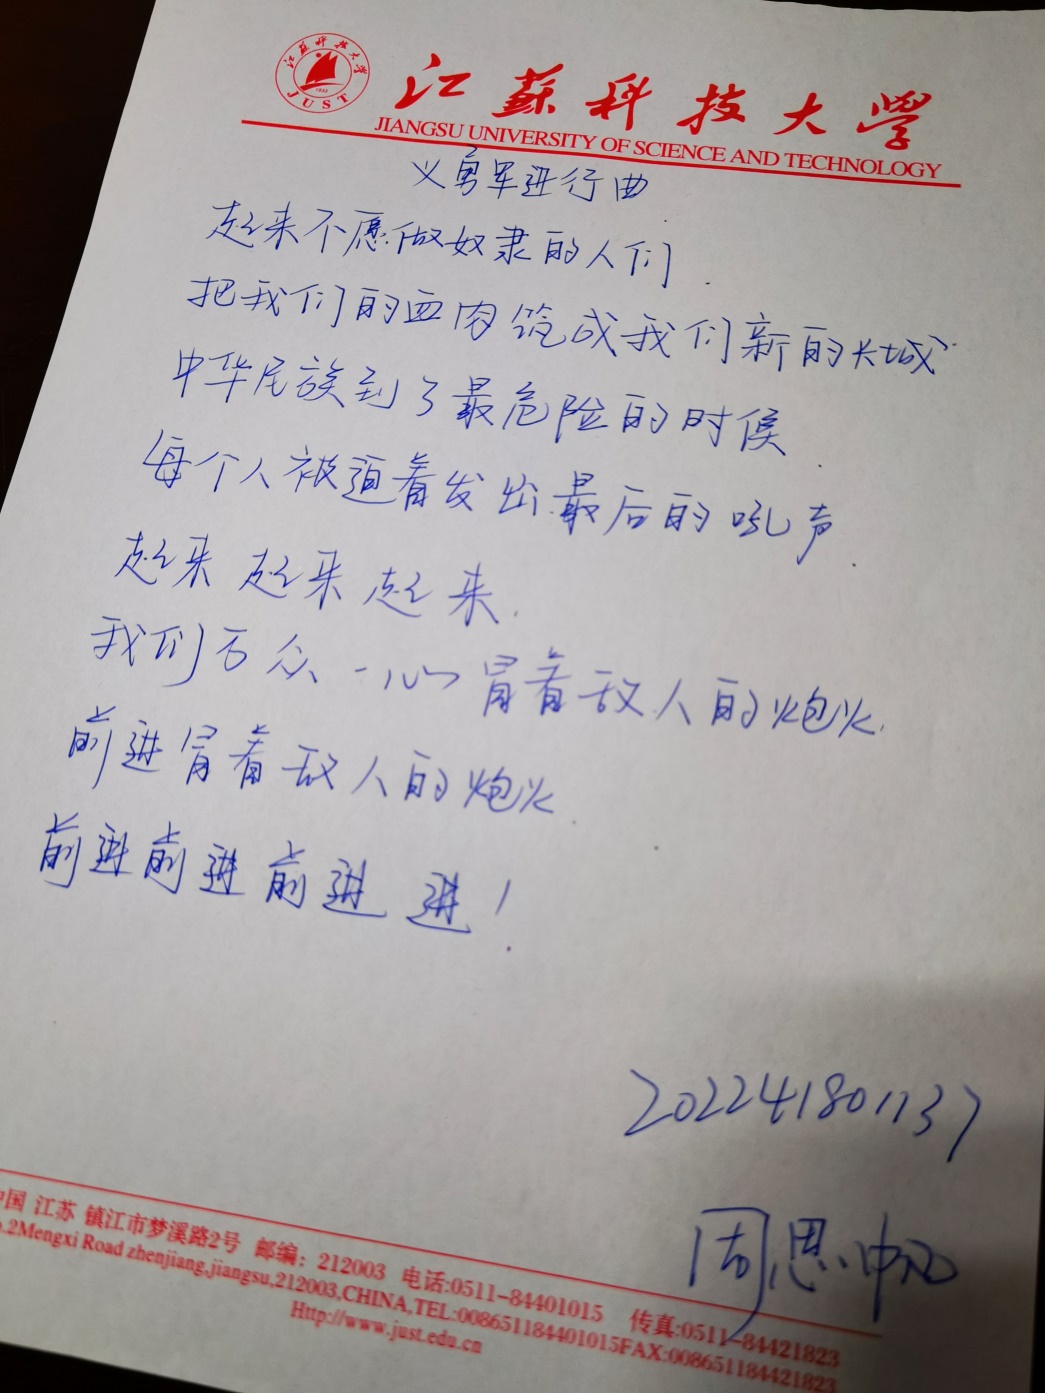 江苏科技大学
JUST
1933
江蘇科技大学
JIANGSU UNIVERSITY OF SCIENCE AND TECHNOLOGY
义勇军进行曲
起来不愿做奴隶的人们
把我们的血肉筑成我们新的长城
中华民族到了最危险的时候
每个人被迫着发出最后的吼声
起来 起来 起来
我们万众一心冒着敌人的炮火
前进冒着敌人的炮火
前进前进前进 进!
202241801137
周思
中国 江苏 镇江市梦溪路2号 邮编:212003 电话:0511-84401015 传真:0511-84421823
.2Mengxi Road zhenjiang,jiangsu,212003,CHINA,TEL:008651184401015FAX:008651184421823
Http://www.just.edu.cn